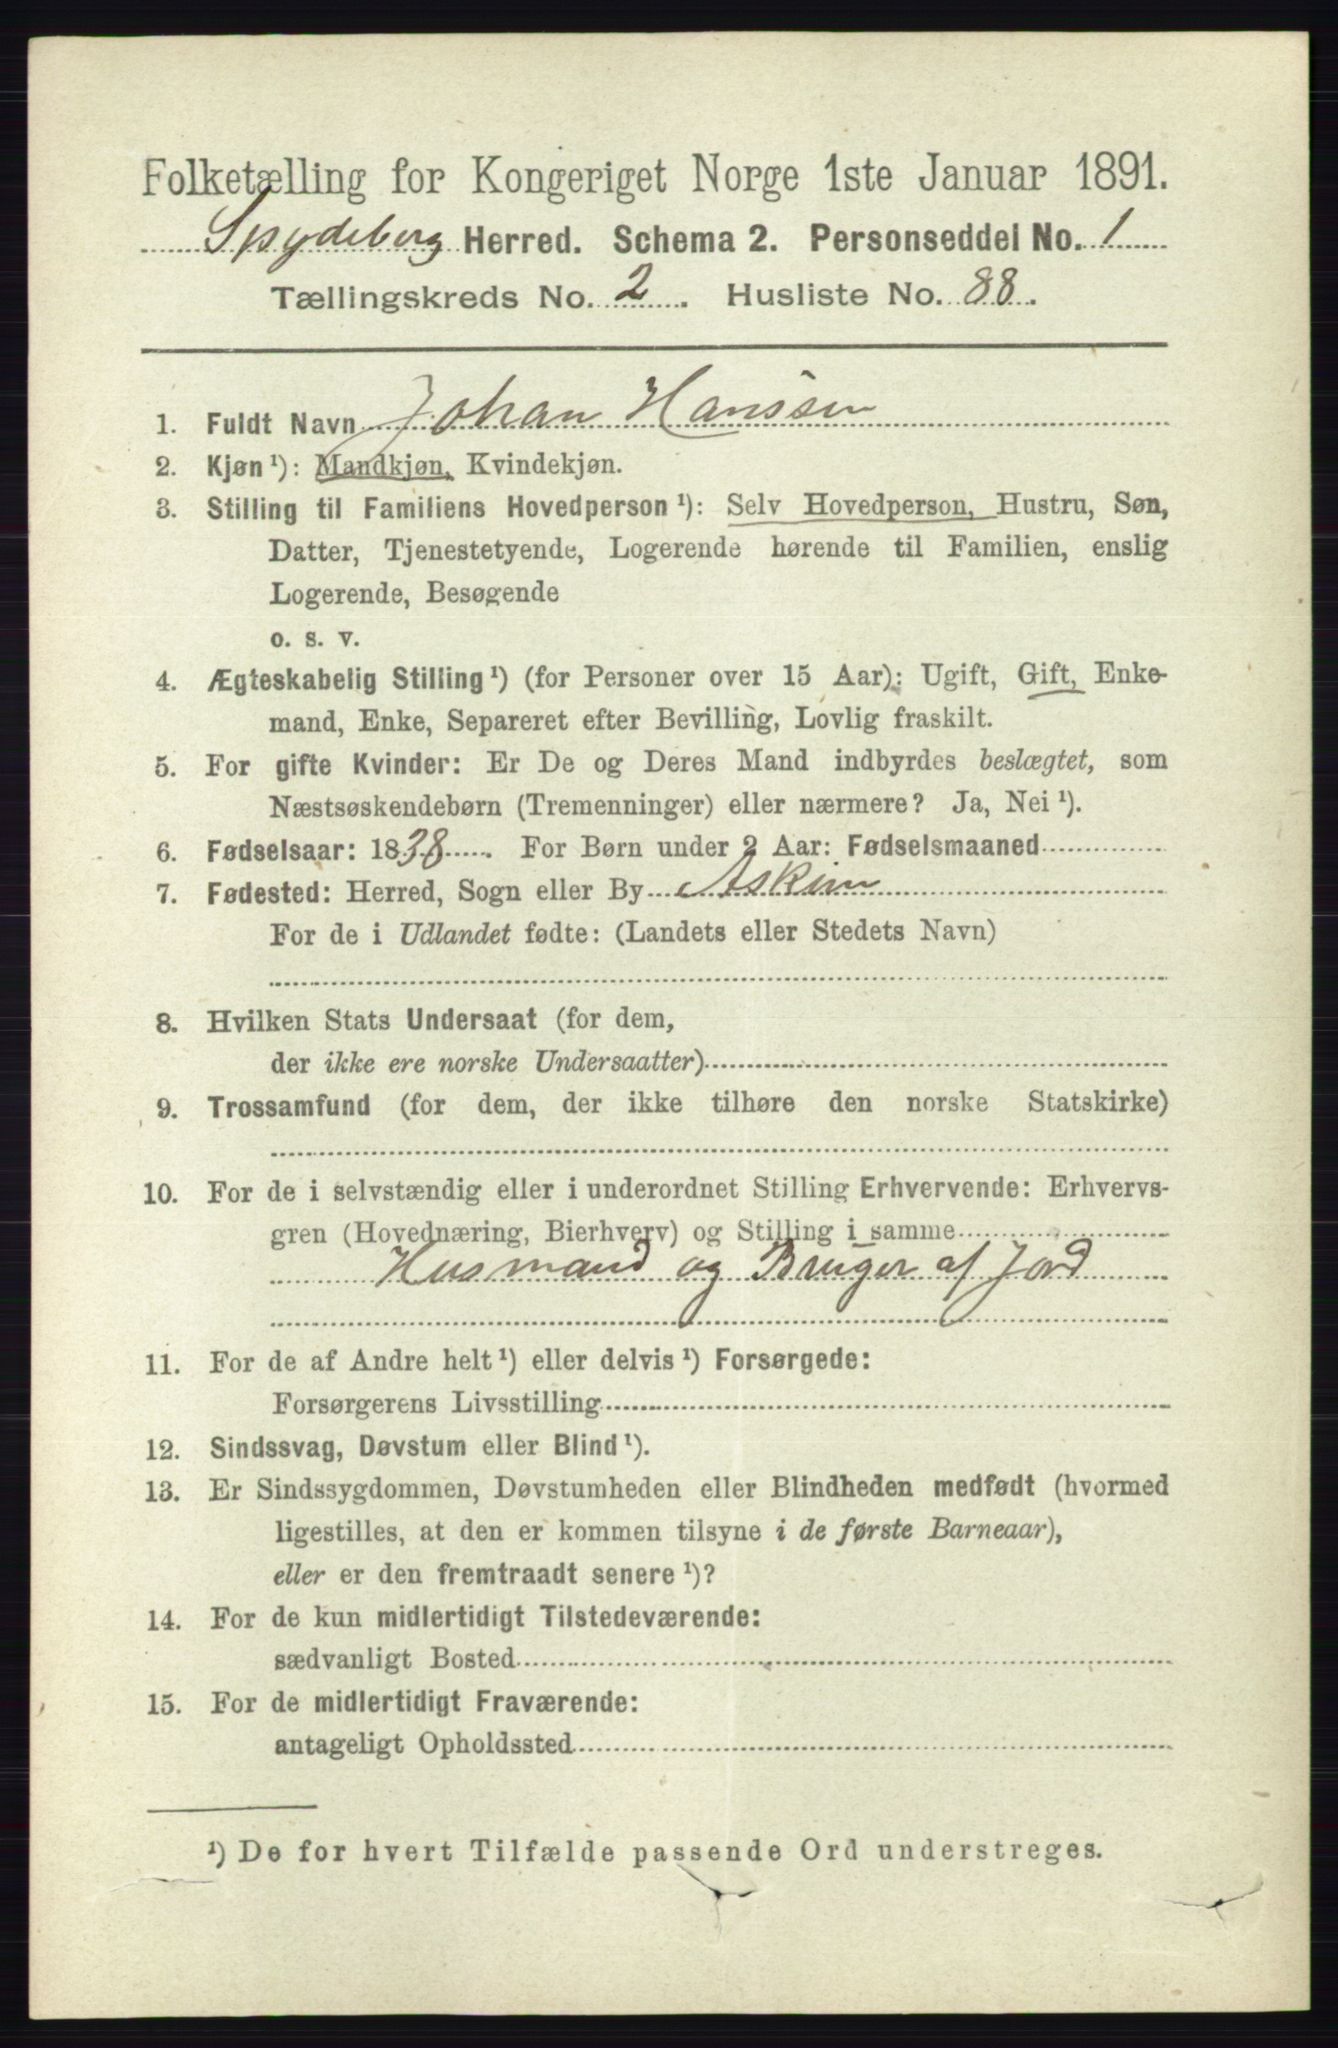 Folketælling for Kongeriget Norge 1ste Januar 1891.
Spydeberg Herred. Schema 2. Personseddel No. 1
Tællingskreds No. 2. Husliste No. 88.
1. Fuldt Navn Johan Hanssen
2. Kjøn ¹): Mandkjøn, Kvindekjøn.
3. Stilling til Familiens Hovedperson ¹): Selv Hovedperson, Hustru, Søn,
Datter, Tjenestetyende, Logerende hørende til Familien, enslig
Logerende, Besøgende
o. s. v.
4. Ægteskabelig Stilling ¹) (for Personer over 15 Aar): Ugift, Gift, Enke-
mand, Enke, Separeret efter Bevilling, Lovlig fraskilt.
5. For gifte Kvinder: Er De og Deres Mand indbyrdes beslægtet, som
Næstsøskendebørn (Tremenninger) eller nærmere? Ja, Nei ¹).
6. Fødselsaar: 1838. For Børn under 2 Aar: Fødselsmaaned
7. Fødested: Herred, Sogn eller By Askim
For de i Udlandet fødte: (Landets eller Stedets Navn)
8. Hvilken Stats Undersaat (for dem,
der ikke ere norske Undersaatter)
9. Trossamfund (for dem, der ikke tilhøre den norske Statskirke)
10. For de i selvstændig eller i underordnet Stilling Erhvervende: Erhvervs-
gren (Hovednæring, Bierhverv) og Stilling i samme
Husmand og Bruger af Jord
11. For de af Andre helt ¹) eller delvis ¹) Forsørgede:
Forsørgerens Livsstilling
12. Sindssvag, Døvstum eller Blind ¹).
13. Er Sindssygdommen, Døvstumheden eller Blindheden medfødt (hvormed
ligestilles, at den er kommen tilsyne i de første Barneaar),
eller er den fremtraadt senere ¹)?
14. For de kun midlertidigt Tilstedeværende:
sædvanligt Bosted
15. For de midlertidigt Fraværende:
antageligt Opholdssted
¹) De for hvert Tilfælde passende Ord understreges.